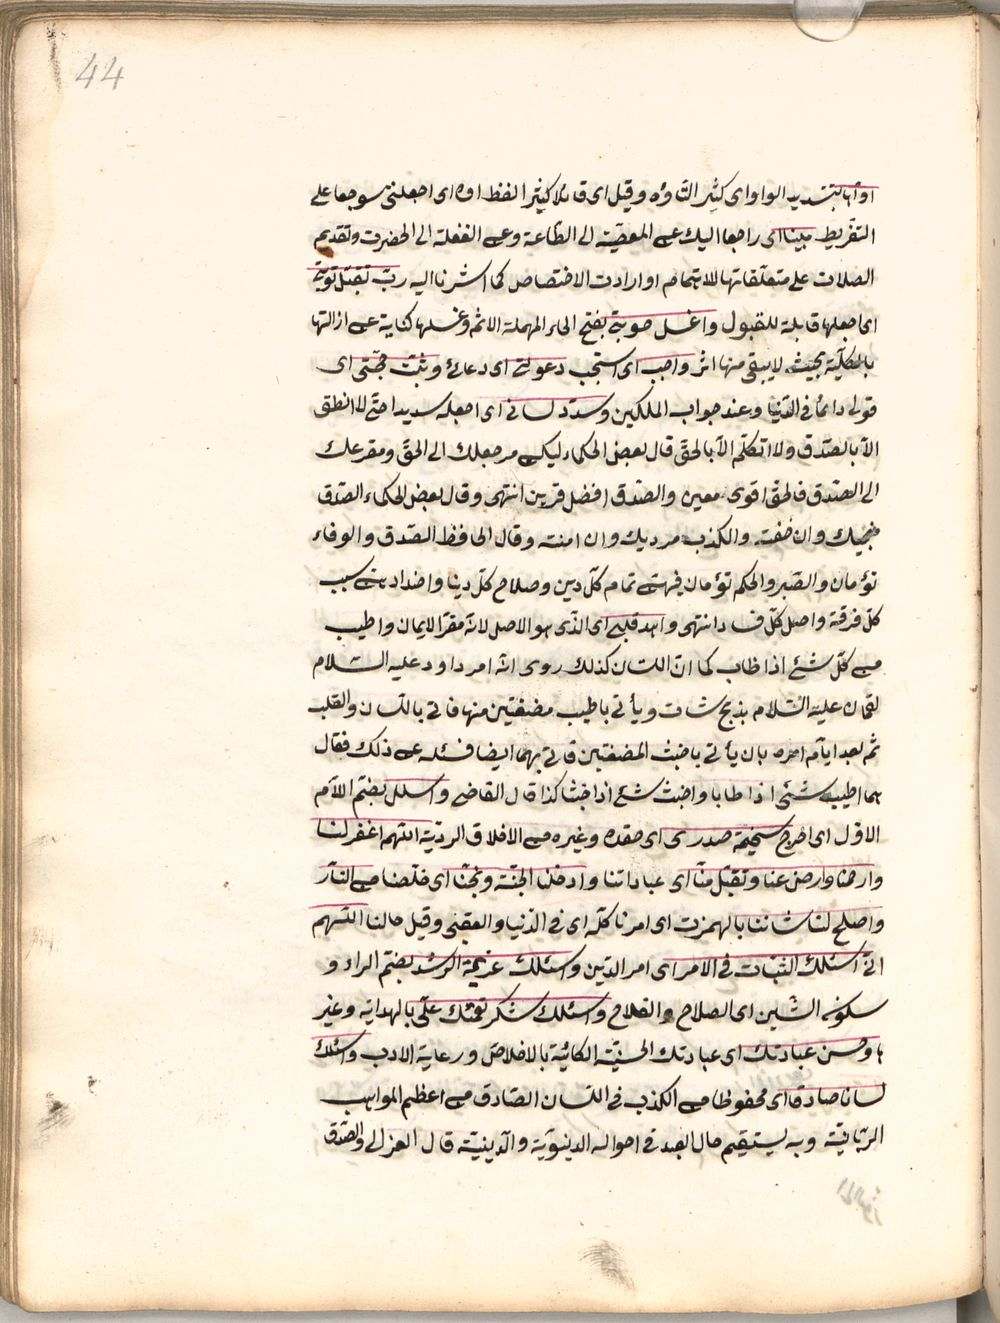 44
اواها بتشديد الواو اى كثير التأوّه وقيل اى قائلا كثير الفظ اوه اى اجعلنى متوجعا على
التفريط منيبا اى راجعا اليك عن المعصية الى الطّاعة وعن الغفلة الى الحضرت وتقديم
الصلات على متعلقاتها للاهتمام او ارادت الاختصاص كما اشرنا اليه ربّ تقبّل توبتى
اى اجعلها قابلة للقبول واغسل حوبتى بفتح الحاء المهملة الاثم وغسلها كناية عن ازالتها
بالكليّة بحيث لايبقى منها اثر واجب اى استجب دعوتى اى دعائى وثبّت حجّتى اى
قولى دائما فى الدّنيا وعند جواب الملكين وسدّد لسانى اى اجعله سديدا حتّى لا انطق
الاّ بالصّدق ولا اتكلّم الاّ بالحقّ قال بعض الحكماء ليكن مرجعك الى الحقّ ومفزعك
الى الصّدق فالحقّ اقوى معين والصّدق افضل قرين انتهى وقال بعض الحكماء الصّدق
منجيك وان خفته والكذب مرديك وان امنته وقال الحافظ الصّدق والوفاء
تؤمان والصّبر والحكم تؤمان فيهنّ تمام كلّ دين وصلاح كلّ دنيا واضدادهنّ سبب
كلّ فرقة واصل كلّ فساد انتهى واهد قلبى اى الذّى هو الاصل لانّه مقرّ الايمان واطيب
من كلّ شئ اذا طاب كما انّ اللسان كذلك روى انّه امر داود عليه السّلام
لقمان عليه السّلام بذبح شات ويأتى باطيب مضغتين منها فاتى باللسان والقلب
ثم بعد ايّام امره بان يأتى باخبث المضغتين فاتى بهما ايضا فسئله عن ذلك فقال
هما اطيب شئ اذا طابا واخبث شئ اذا خبثا كذا قال القاضى واسلل بضمّ اللاّم
الاوّل اى اخرج سخيمة صدرى اى حقده وغيره من الاخلاق الرديّة اللّهم اغفر لنا
وارحمنا وارض عنا وتقبّل منّا اى عباداتنا وادخلنا الجنّة ونجّنا اى خلّصنا من النّار
واصلح لنا شاننا بالهمزت اى امرنا كلّه اى فى الدّنيا والعقبى وقيل حالنا اللّهم
انّى اسئلك الثّبات فى الامر اى امر الدّين واسئلك عزيمة الرّشد بضمّ الراء و
سكون الشّين اى الصلاح والفلاح واسئلك شكر نعمتك علىّ بالهداية وغير
ها وحسن عبادتك اى عبادتك الحسنة الكائنة بالاخلاص ورعاية الادب واسئلك
لسانا صادقا اى محفوظا من الكذب فى اللسان الصّادق من اعظم المواهب
الربّانيّة وبه يستقيم حال العبد فى احواله الدنيويّة والدّينيّة قال الغزالى والصّدق